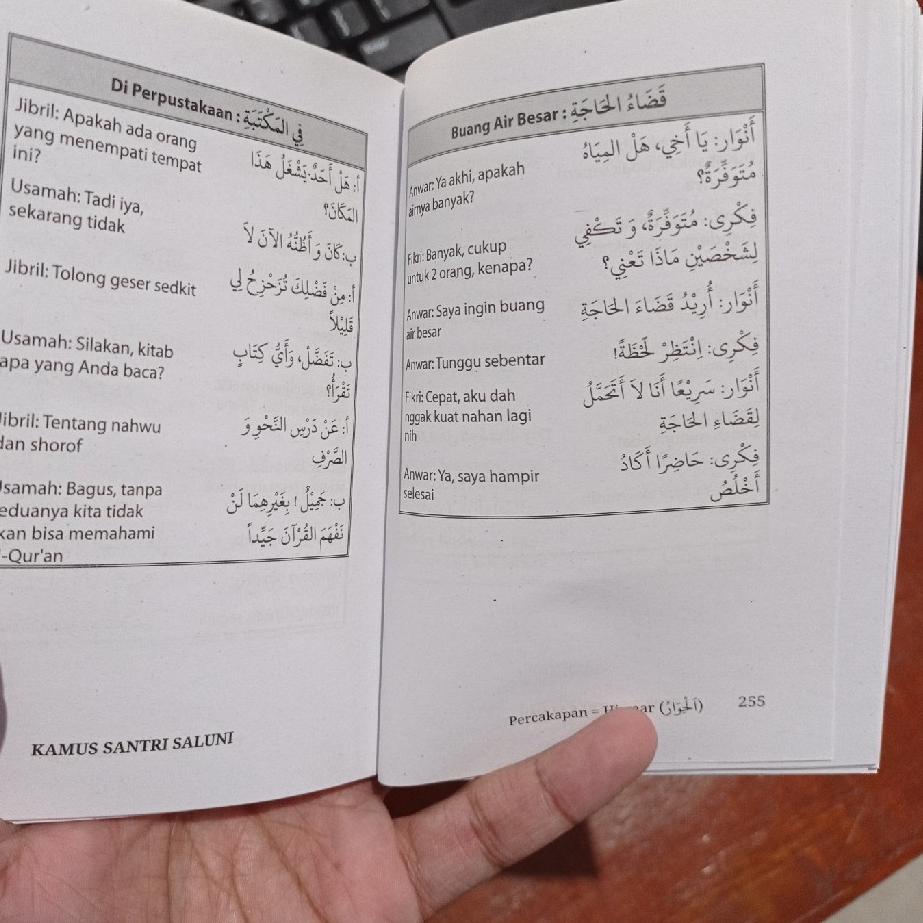 Di Perpustakaan : فِي المَكْتَبَةِ
Jibril: Apakah ada orang
yang menempati tempat
ini?
أ: هَلْ أَحَدٌ يَشْغَلُ هَذَا
المَكَانَ؟
Usamah: Tadi iya,
sekarang tidak
ب: كَانَ وَ أَظُنُّهُ الآنَ لاَ
Jibril: Tolong geser sedkit
أ: مِنْ فَضْلِكَ تُزَحْزِحُ لِي
قَلِيْلاً
Usamah: Silakan, kitab
apa yang Anda baca?
ب: تَفَضَّلْ، وَأَيُّ كِتَابٍ
تَقْرَأُ؟
Jibril: Tentang nahwu
dan shorof
أ: عَنْ دَرْسِ النَّحْوِ وَ
الصَّرْفِ
Usamah: Bagus, tanpa
eduanya kita tidak
kan bisa memahami
-Qur'an
ب: جَمِيْلٌ ! بِغَيْرِهِمَا لَنْ
نَفْهَمَ القُرْآنَ جَيِّداً
KAMUS SANTRI SALUNI
Buang Air Besar : قَضَاءُ الحَاجَةِ
Anwar: Ya akhi, apakah
airnya banyak?
أَنْوَار: يَا أَخِي، هَلْ المِيَاهُ
مُتَوَفِّرَةٌ؟
Fikri: Banyak, cukup
untuk 2 orang, kenapa?
فِكْرِى: مُتَوَفِّرَةٌ، وَ تَكْفِي
لِشَخْصَيْنِ مَاذَا تَعْنِي؟
Anwar: Saya ingin buang
air besar
أَنْوَار: أُرِيْدُ قَضَاءَ الحَاجَةِ
Anwar: Tunggu sebentar
فِكْرِى: اِنْتَظِرْ لَحْظَةً!
Fikri: Cepat, aku dah
nggak kuat nahan lagi
nih
أَنْوَار: سَرِيْعًا أَنَا لاَ أَتَحَمَّلُ
لِقَضَاءِ الحَاجَةِ
Anwar: Ya, saya hampir
selesai
فِكْرِى: حَاضِرًا أَكَادُ
أَخْلُصُ
Percakapan = (اَلْحِوَارُ) 255